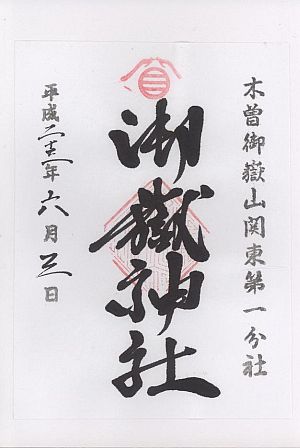 木曽御嶽山関東第一分社
御嶽神社
平成二十三年六月三日